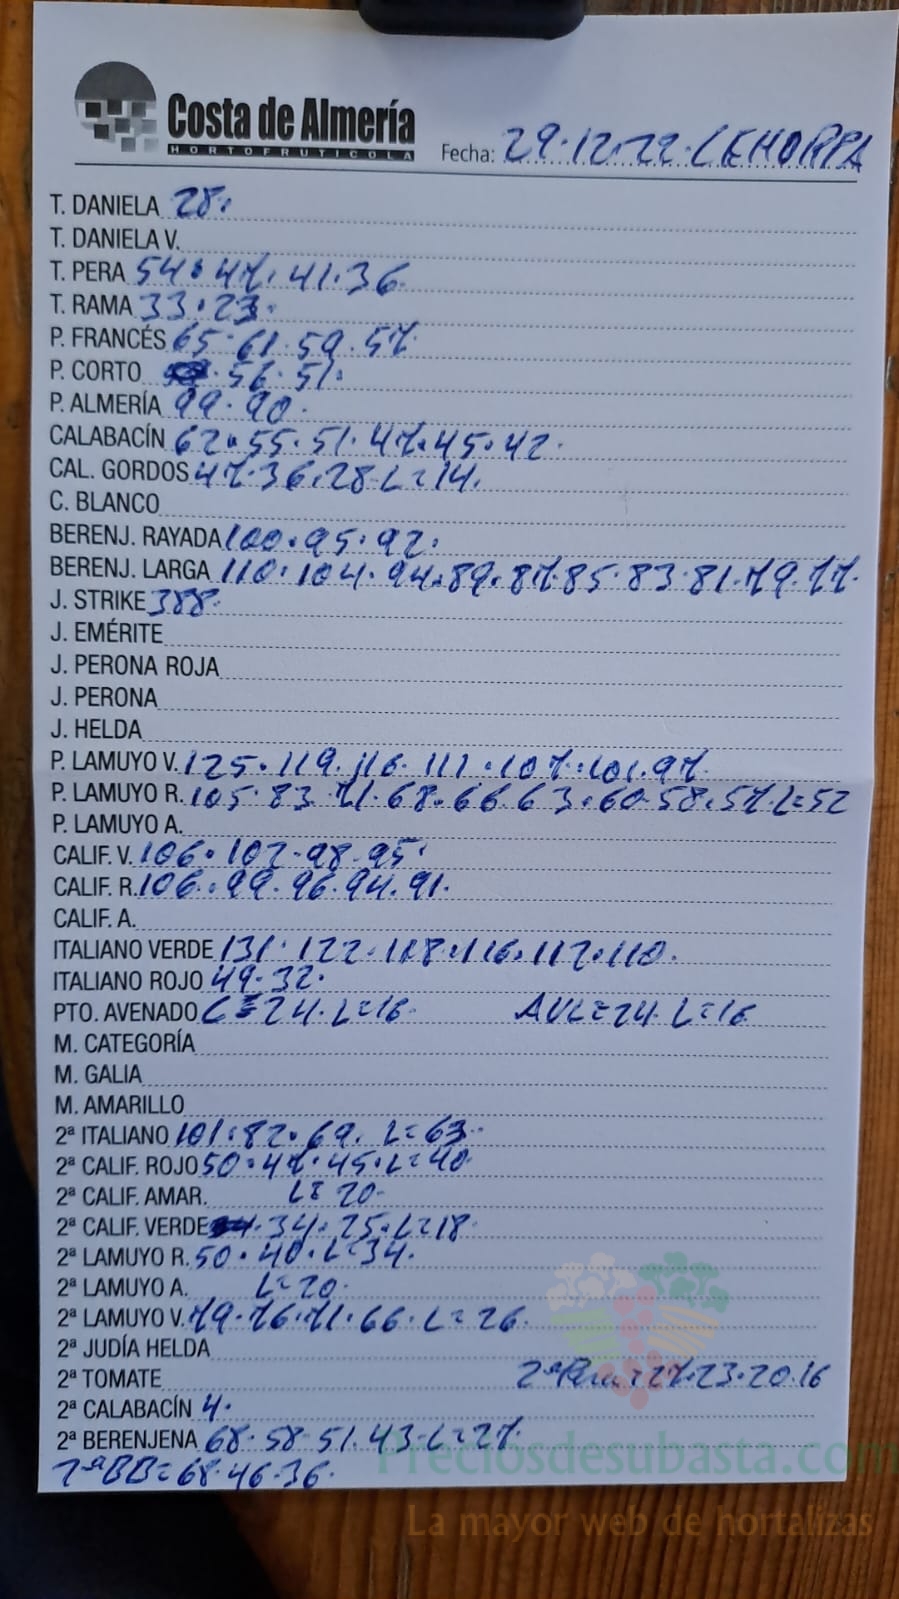 Costa de Almería
HORTOFRUTICOLA
Fecha: 29.12.22. LEHORPA
T. DANIELA 28.
T. DANIELA V.
T. PERA 54.47.41.36
T. RAMA 33.23.
P. FRANCÉS 65.61.59.57
P. CORTO .56.51.
P. ALMERÍA 99.90.
CALABACÍN 62.55.51.47.45.42.
CAL. GORDOS 47.36.28.L=14.
C. BLANCO
BERENJ. RAYADA 100.95.92.
BERENJ. LARGA 110.104.94.89.87.85.83.81.79.77.
J. STRIKE 388.
J. EMÉRITE
J. PERONA ROJA
J. PERONA
J. HELDA
P. LAMUYO V. 125.119.116.111.107.101.97.
P. LAMUYO R. 105.83.71.68.66.63.60.58.57.L=52
P. LAMUYO A.
CALIF. V. 106.102.98.95.
CALIF. R. 106.99.96.94.91.
CALIF. A.
ITALIANO VERDE 131.122.118.116.112.110.
ITALIANO ROJO 49.32.
PTO. AVENADO L=24.L=16. AVL=24.L=16
M. CATEGORÍA
M. GALIA
M. AMARILLO
2ª ITALIANO 101.82.69. L=63.
2ª CALIF. ROJO 50.47.45.L=40.
2ª CALIF. AMAR. L=20.
2ª CALIF. VERDE .34.25.L=18.
2ª LAMUYO R. 50.40.L=34.
2ª LAMUYO A. L=20.
2ª LAMUYO V. 79.76.71.66.L=26.
2ª JUDÍA HELDA
2ª TOMATE 2ª Pera=27.23.20.16
2ª CALABACÍN 4.
2ª BERENJENA 68.58.51.43.L=27.
2ª BB=68.46.36.
Preciosdesubasta.com
La mayor web de hortalizas